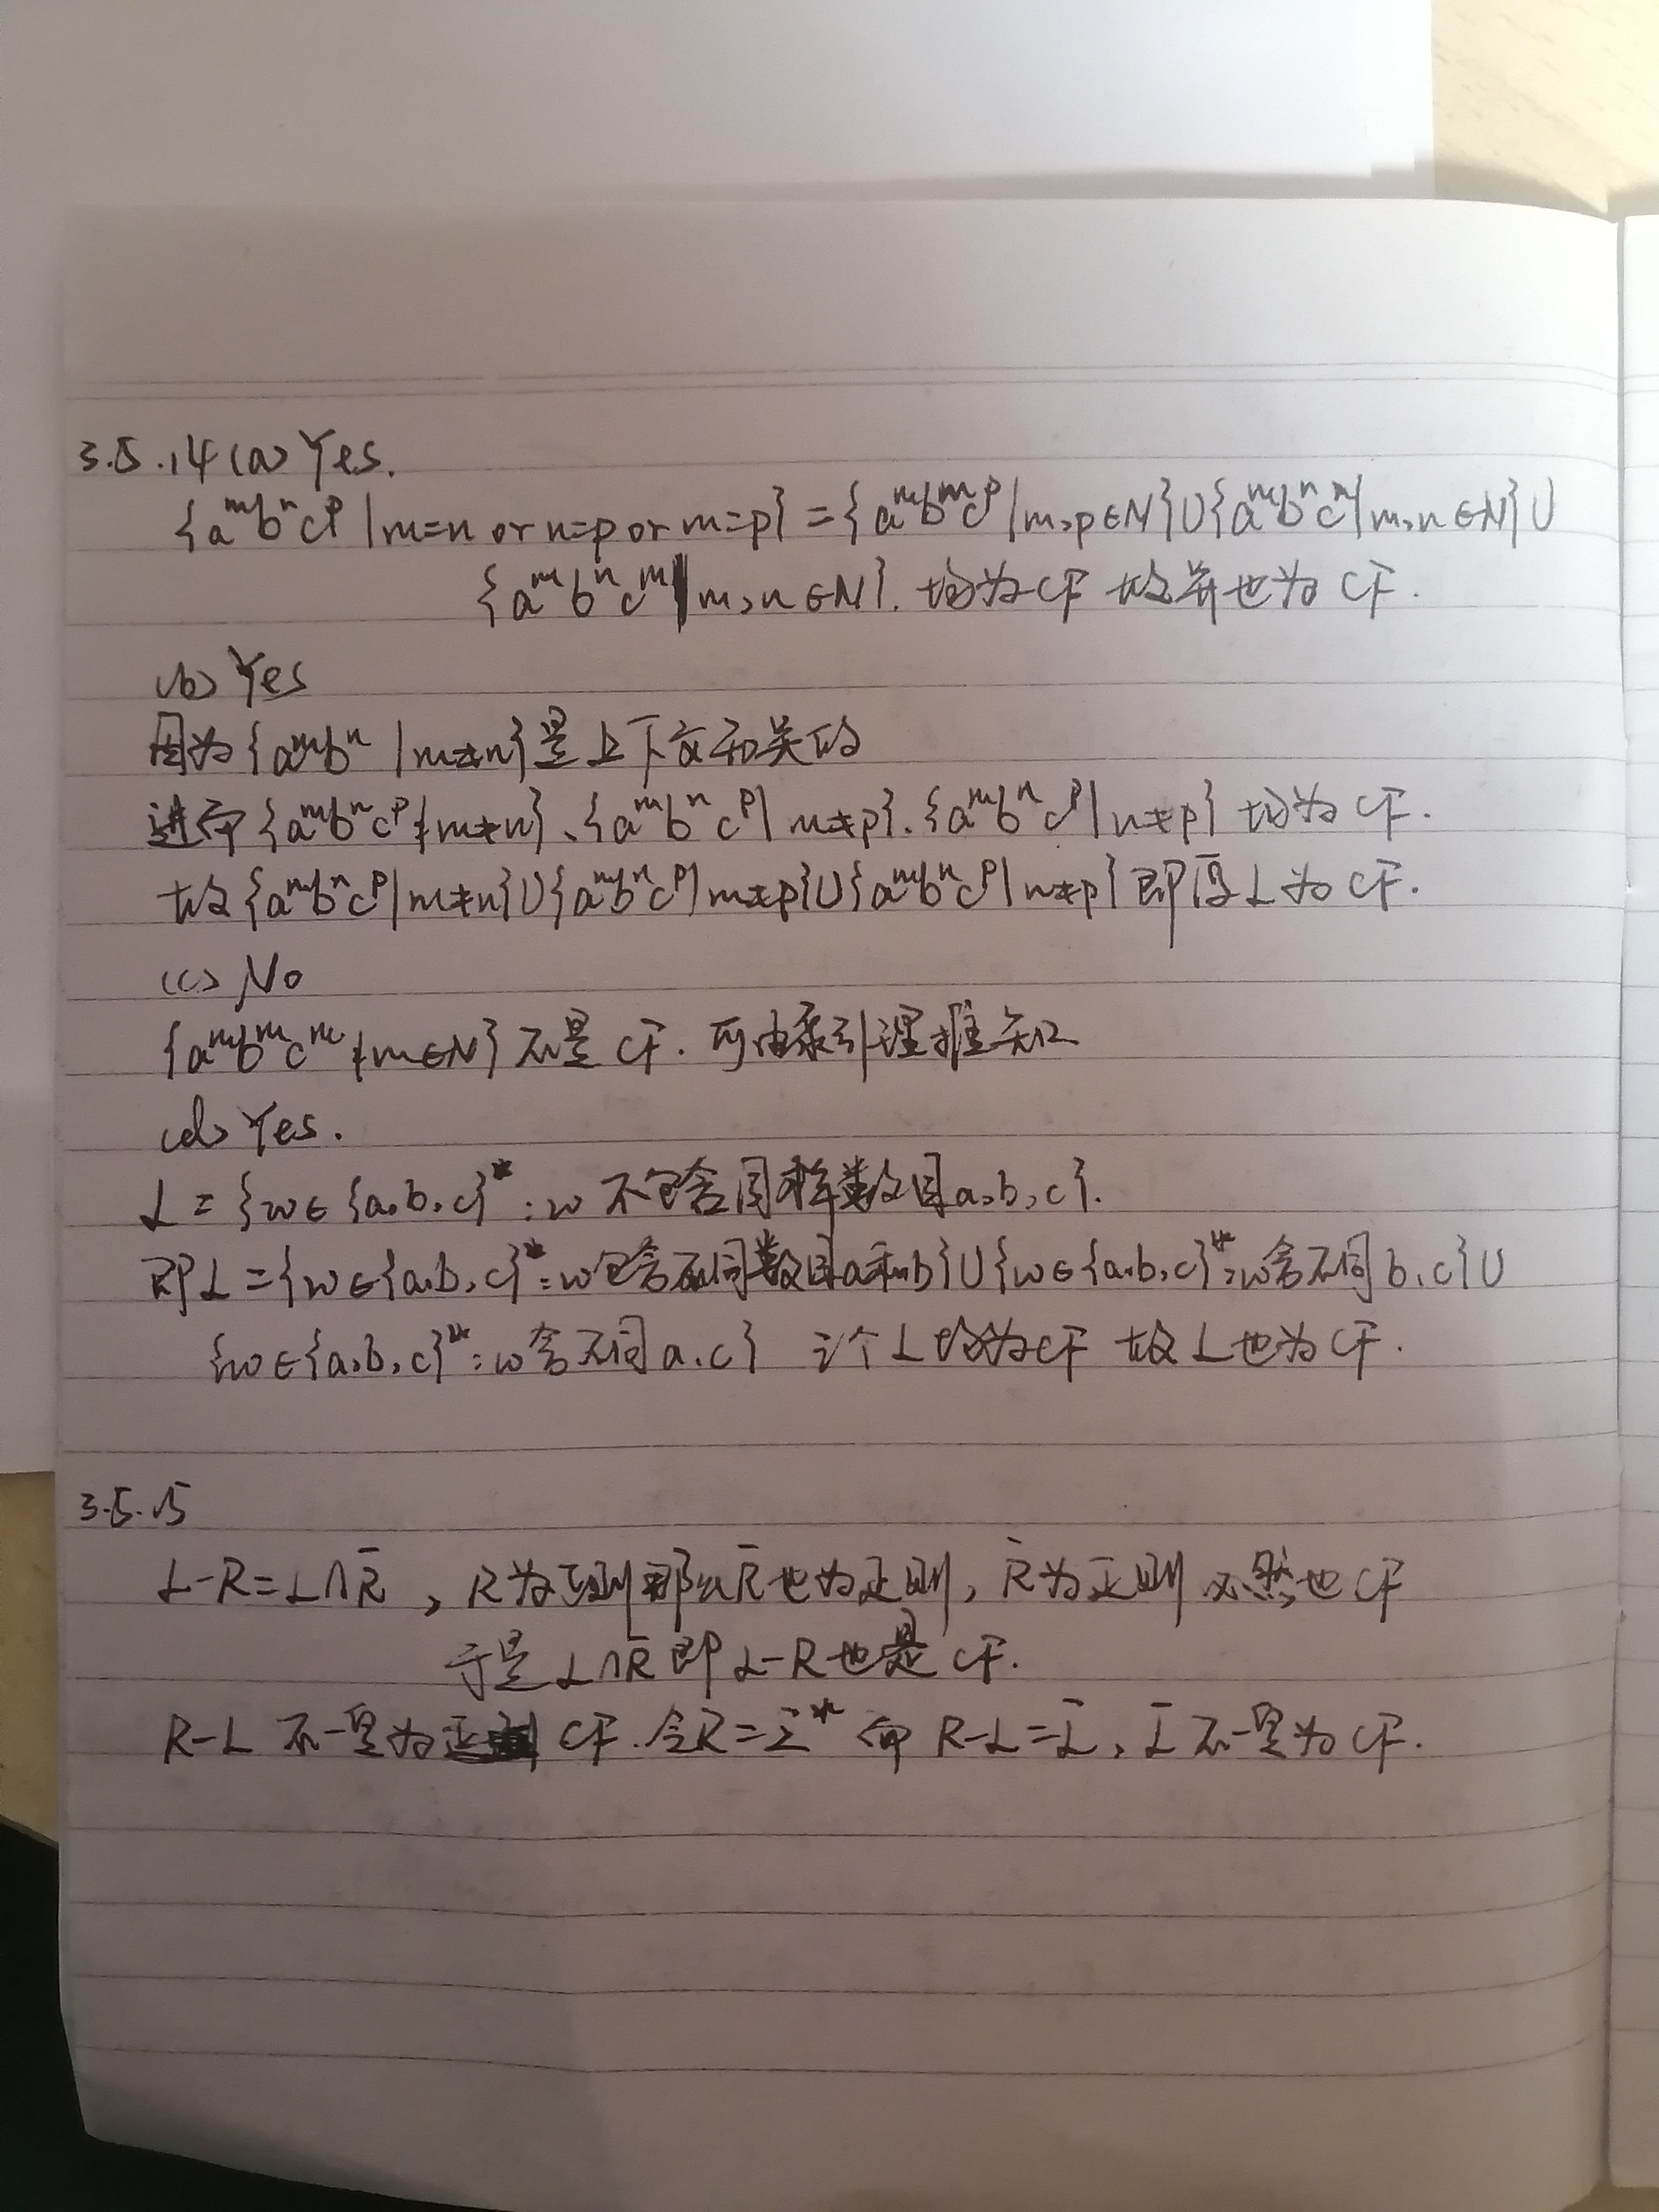 3.5.14 (a) Yes.
{aᵐbⁿcᵖ | m=n or n=p or m=p} = {aᵐbᵐcᵖ | m,p∈N} ∪ {aᵐbⁿcⁿ | m,n∈N} ∪
{aᵐbⁿcᵐ | m,n∈N}. 均为CF 故并也为CF.
(b) Yes
因为{aᵐbⁿ | m≠n}是上下文无关的
进而{aᵐbⁿcᵖ | m≠n}、{aᵐbⁿcᵖ | m≠p}、{aᵐbⁿcᵖ | n≠p} 均为CF.
故{aᵐbⁿcᵖ | m≠n}∪{aᵐbⁿcᵖ | m≠p}∪{aᵐbⁿcᵖ | n≠p} 即原L为CF.
(c) No
{aᵐbᵐcᵐ | m∈N}不是CF. 可由泵引理推知
(d) Yes.
L = {w∈{a,b,c}*: w不包含同样数目a,b,c}.
即L = {w∈{a,b,c}*: w包含不同数目a和b}∪{w∈{a,b,c}*: w含不同b,c}∪
{w∈{a,b,c}*: w含不同a,c} 三个L均为CF 故L也为CF.
3.5.15
L-R=L∩R̄ , R为正则那么R̄也为正则, R̄为正则必然也CF
于是L∩R̄即L-R也是CF.
R-L 不一定为 CF. 令R=Σ* 而 R-L=L̄, L̄不一定为CF.